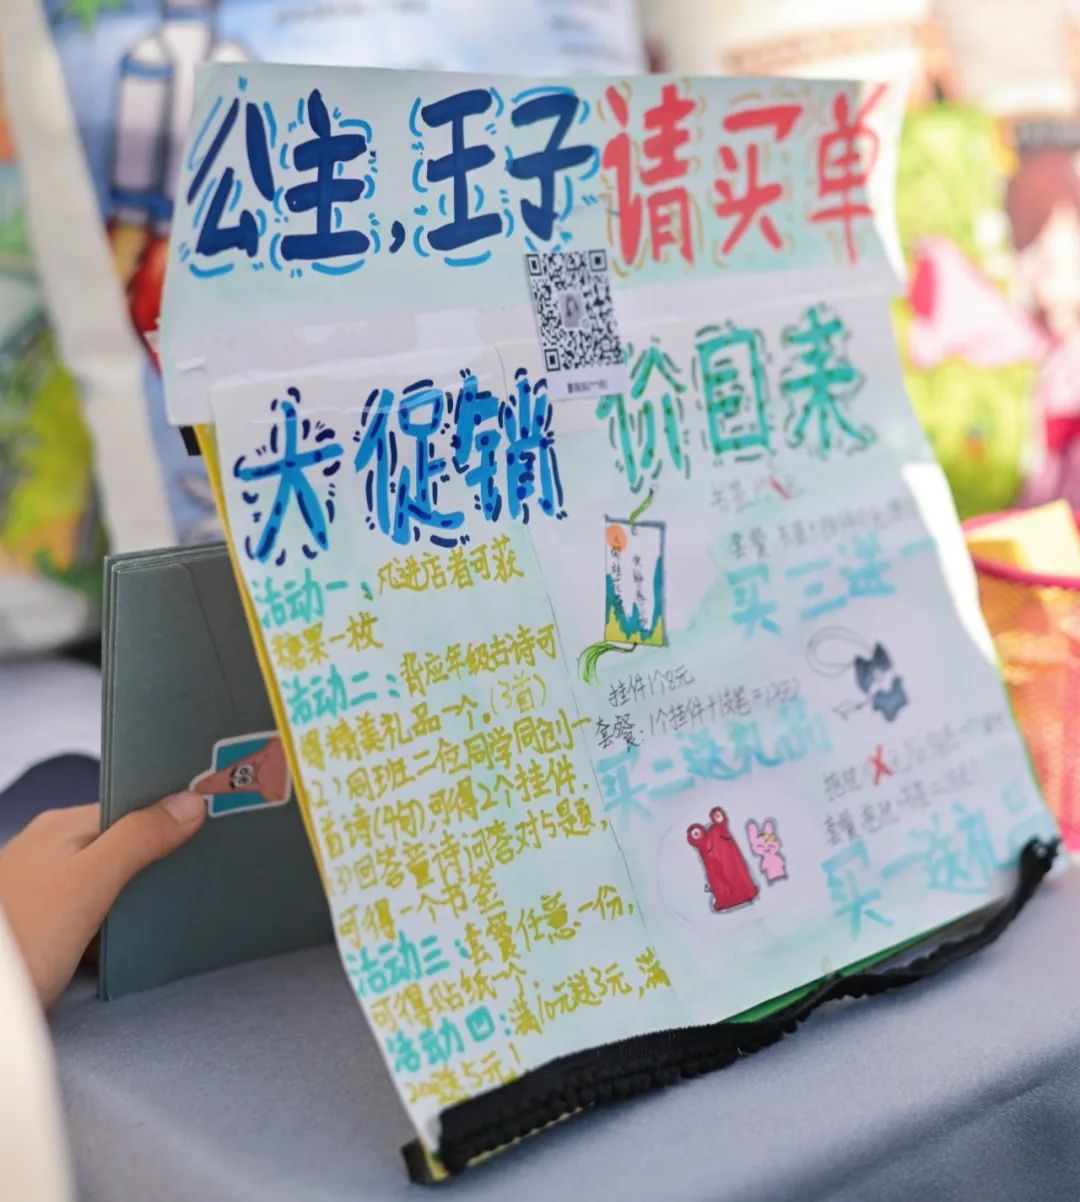 公主,王子请买单
大促销
活动一:凡进店者可获
糖果一枚
活动二:背应年级古诗可
得精美礼品一个.(3首)
(2)同班二位同学同创一
首诗(4句),可得2个挂件.
(3)回答童诗问答对5题,
可得一个书签
活动三:套餐任意一份,
可得贴纸一个
活动四:满10元送3元,满
20送5元!
价目表
书签1个
套餐:
买三送一
挂件1个8元
套餐:1个挂件+1支笔=12元
买二送礼品
套餐
买一送礼品